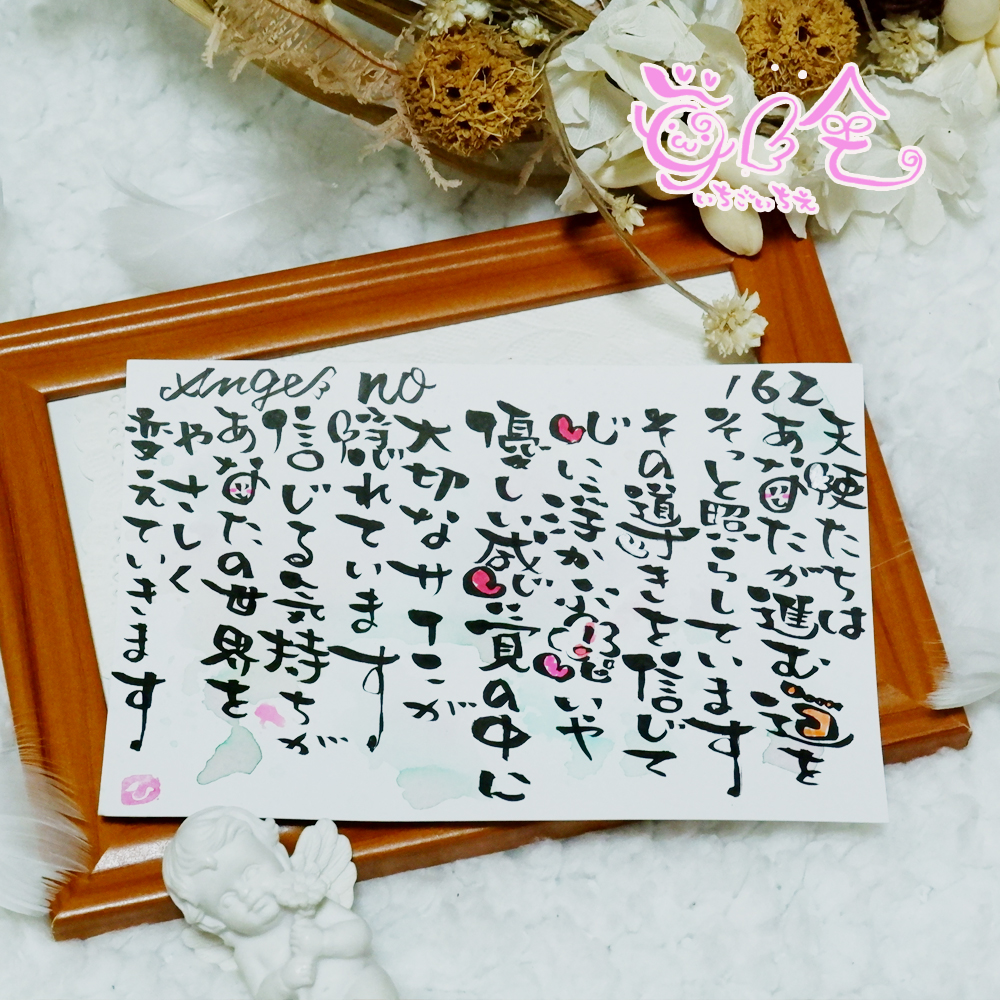 Angel no 162
天使たちは
あなたが進む道を
そっと照らしています
その導きを信じて
心に浮かぶ想いや
優しい感覚の中に
大切なサインが
隠れています
信じる気持ちが
あなたの世界を
やさしく
変えていきます
いちごいちえ